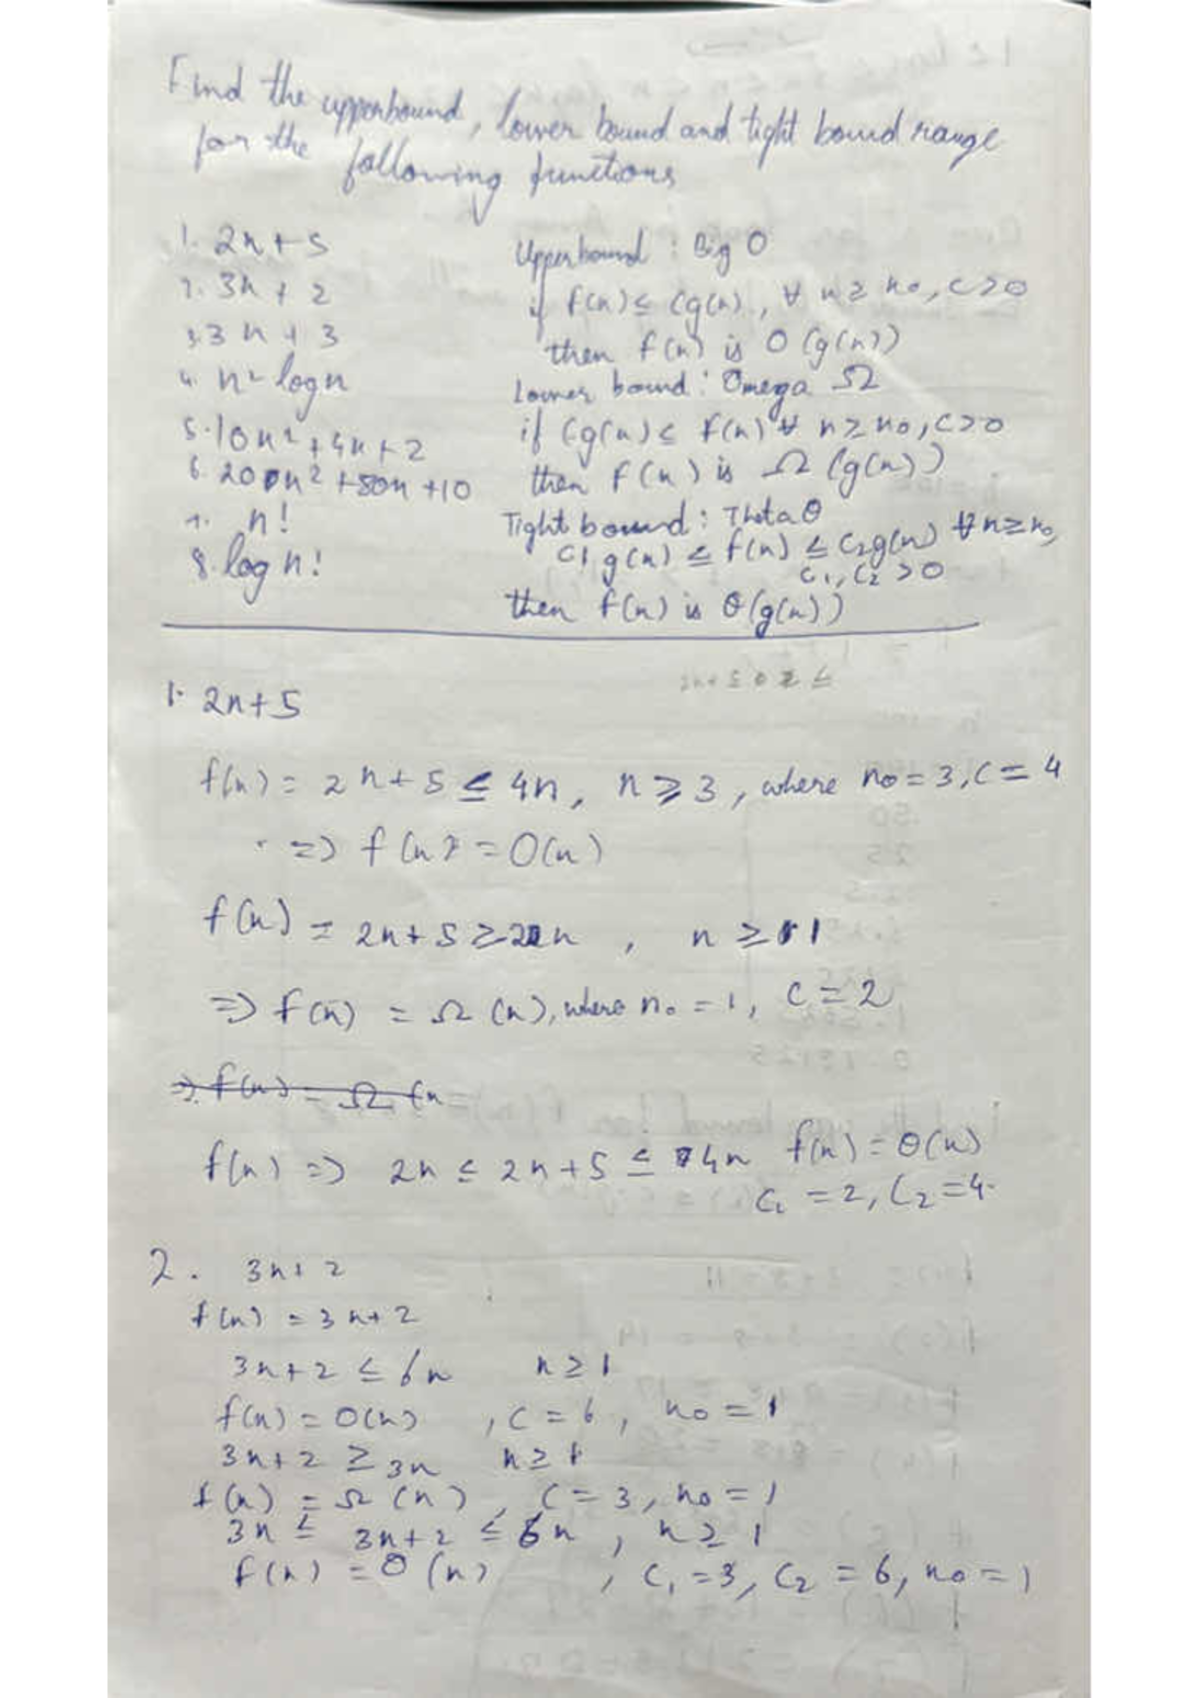 Find the upperbound, lower bound and tight bound range
for the following functions
1. 2n + 5
2. 3n + 2
3. 3n + 3
4. n² log n
5. 10n² + 4n + 2
6. 200n² + 50n + 10
7. n!
8. log n!
Upperbound : Big O
if f(n) ≤ Cg(n), ∀ n ≥ n₀, C>0
then f(n) is O(g(n))
Lower bound : Omega Ω
if Cg(n) ≤ f(n) ∀ n ≥ n₀, C>0
then f(n) is Ω (g(n))
Tight bound : Theta θ
C₁g(n) ≤ f(n) ≤ C₂g(n) ∀ n ≥ n₀,
C₁, C₂ > 0
then f(n) is θ(g(n))
1. 2n+5
f(n) = 2n+5 ≤ 4n, n ≥ 3, where n₀ = 3, C = 4
=> f(n) = O(n)
f(n) = 2n+5 ≥ 2n , n ≥ 1
=> f(n) = Ω (n), where n₀ = 1, C = 2
=> f(n) = Ω (n
f(n) => 2n ≤ 2n+5 ≤ 4n f(n) = θ(n)
C₁ = 2, C₂ = 4.
2. 3n+2
f(n) = 3n+2
3n+2 ≤ 6n n ≥ 1
f(n) = O(n) , C = 6, n₀ = 1
3n+2 ≥ 3n n ≥ 1
f(n) = Ω (n), C = 3, n₀ = 1
3n ≤ 3n+2 ≤ 6n , n ≥ 1
f(n) = θ (n) , C₁ = 3, C₂ = 6, n₀ = 1